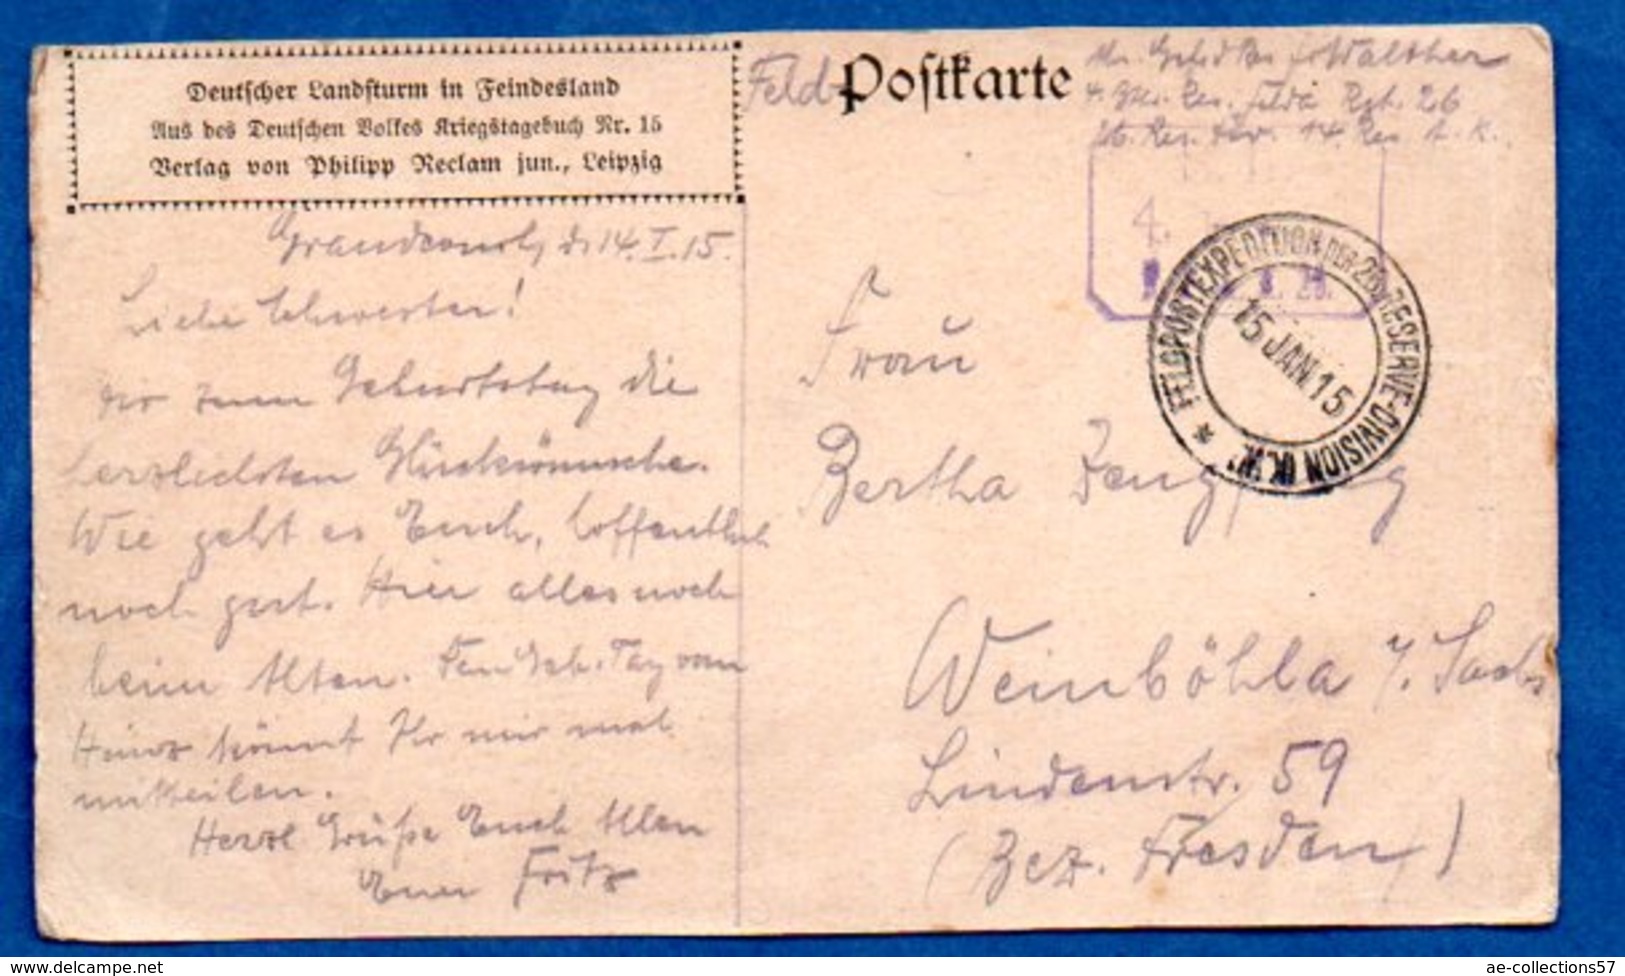 Deutscher Landsturm in Feindesland
Aus des Deutschen Volkes Kriegstagebuch Nr. 15
Verlag von Philipp Reclam jun., Leipzig
Feld-Postkarte
Walther
4. Res. Feld Rgt. 26
26. Res. Div. 14. Res. A. K.
4.
FELDPOSTEXPEDITION DER 26. RESERVE-DIVISION
15 JAN 15
d. 14.I.15.
Liebe Schwester!
Dir zum Geburtstag die
herzlichsten Glückwünsche.
Wie geht es Euch, hoffentlich
noch gut. Hier alles noch
beim Alten. Den Geb. Tag von
Heinz könnt Ihr mir mal
mitteilen.
Herzl Grüße Euch Allen
Euer Fritz
Frau
Bertha
Weinböhla i/. Sachs
Lindenstr. 59
(Bez. Dresden)
ae-collections57